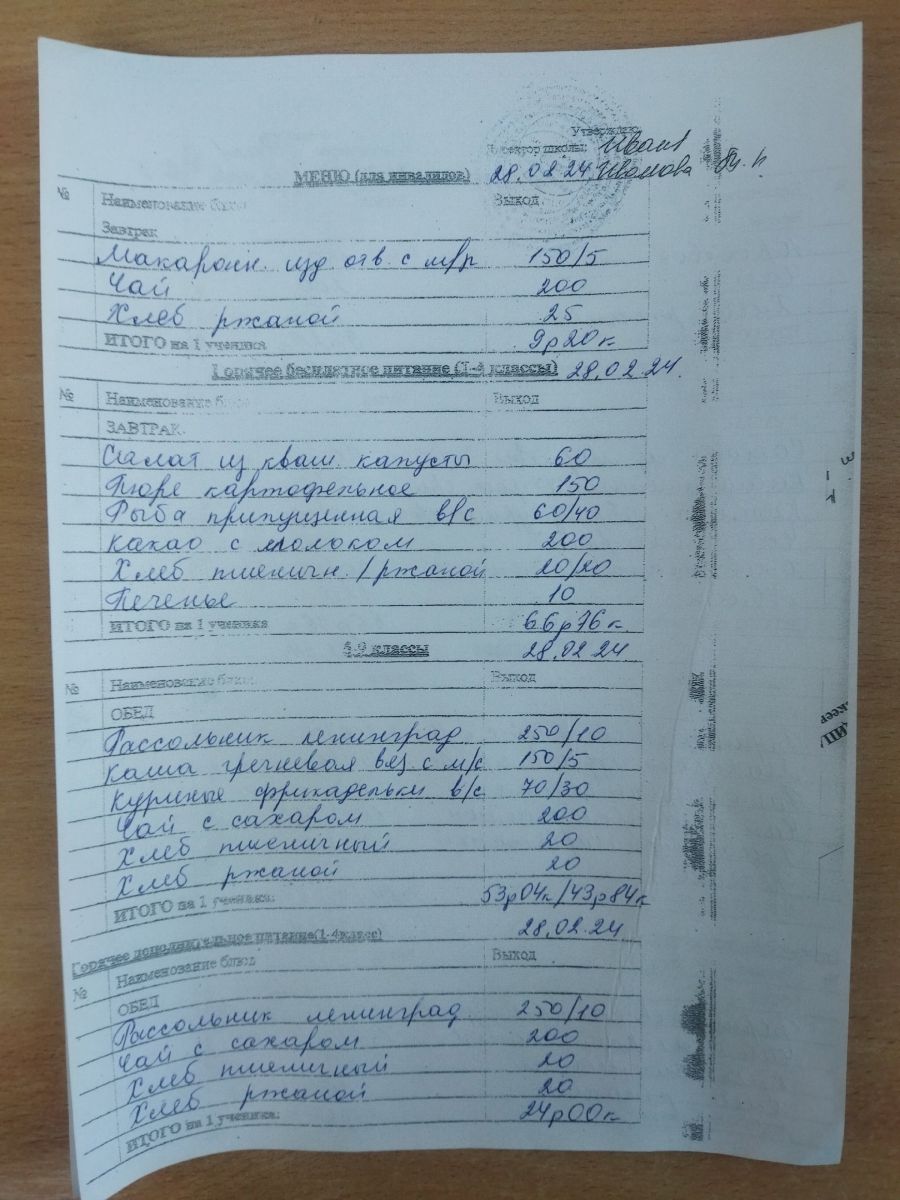 Утверждаю
Директор школы:
МЕНЮ (для инвалидов) 28.02.24 Иванова
№ Наименование блюд Выход
Завтрак
Макаронн. изд. отв. с м/р 150/5
Чай 200
Хлеб ржаной 25
ИТОГО на 1 ученика 9р20к
Горячее бесплатное питание (1-4 классы) 28.02.24.
№ Наименование блюд Выход
ЗАВТРАК
Салат из кваш. капусты 60
Пюре картофельное 150
Рыба припущенная в/с 60/40
Какао с молоком 200
Хлеб пшеничн. / ржаной 20/20
Печенье 10
ИТОГО на 1 ученика 66р76к
классы 28.02.24
№ Наименование блюд Выход
ОБЕД
Рассольник ленинград 250/10
Каша гречневая вяз с м/с 150/5
Куриные фрикадельки в/с 70/30
Чай с сахаром 200
Хлеб пшеничный 20
Хлеб ржаной 20
ИТОГО на 1 ученика: 53р04к/43р84к
Горячее дополнительное питание(1-4класс) 28.02.24
№ Наименование блюд Выход
ОБЕД
Рассольник ленинград 250/10
Чай с сахаром 200
Хлеб пшеничный 20
Хлеб ржаной 20
ИТОГО на 1 ученика: 24р00к